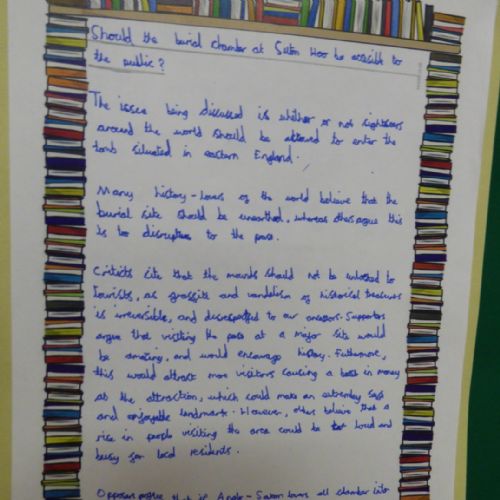 Should the burial chamber at Suton Hoo be accesible to
the public?
The issue being discussed is whether or not sightseers
around the world should be allowed to enter the
tomb situated in eastern England.
Many history-lovers of the world believe that the
burial site should be unearthed, whereas others argue this
is too disruptive to the past.
Critics cite that the mounds should not be unlocked to
tourists, as graffiti and vandalism of historical treasures
is irreversible, and disrespectful to our ancestors. Supporters
argue that visiting the past at a major site would
be amazing, and would encourage history. Futhermore,
this would attract more visitors causing a boost in money
at the attraction, which could make an extremley safe
and enjoyable landmark. However, others believe that a
rise in people visiting the area could be loud and
busy for local residents.
Opposers argue that if Anglo-Saxon lovers all clamber into